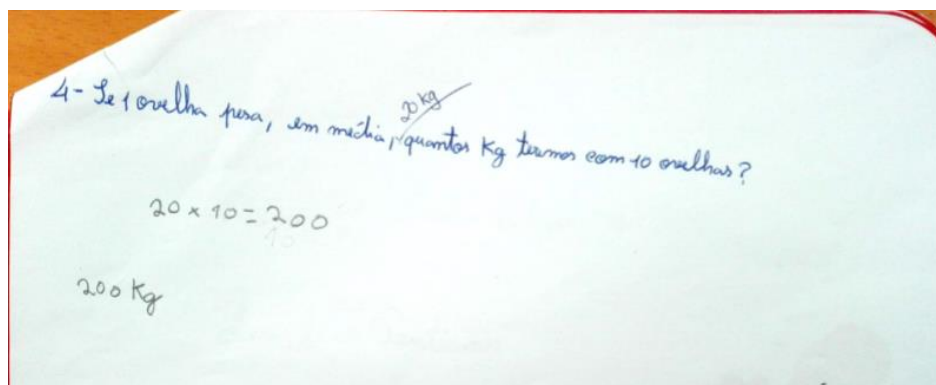 20 kg
4- Se 1 ovelha pesa, em média, quantos Kg temos com 10 ovelhas?
20 x 10 = 200
200 Kg